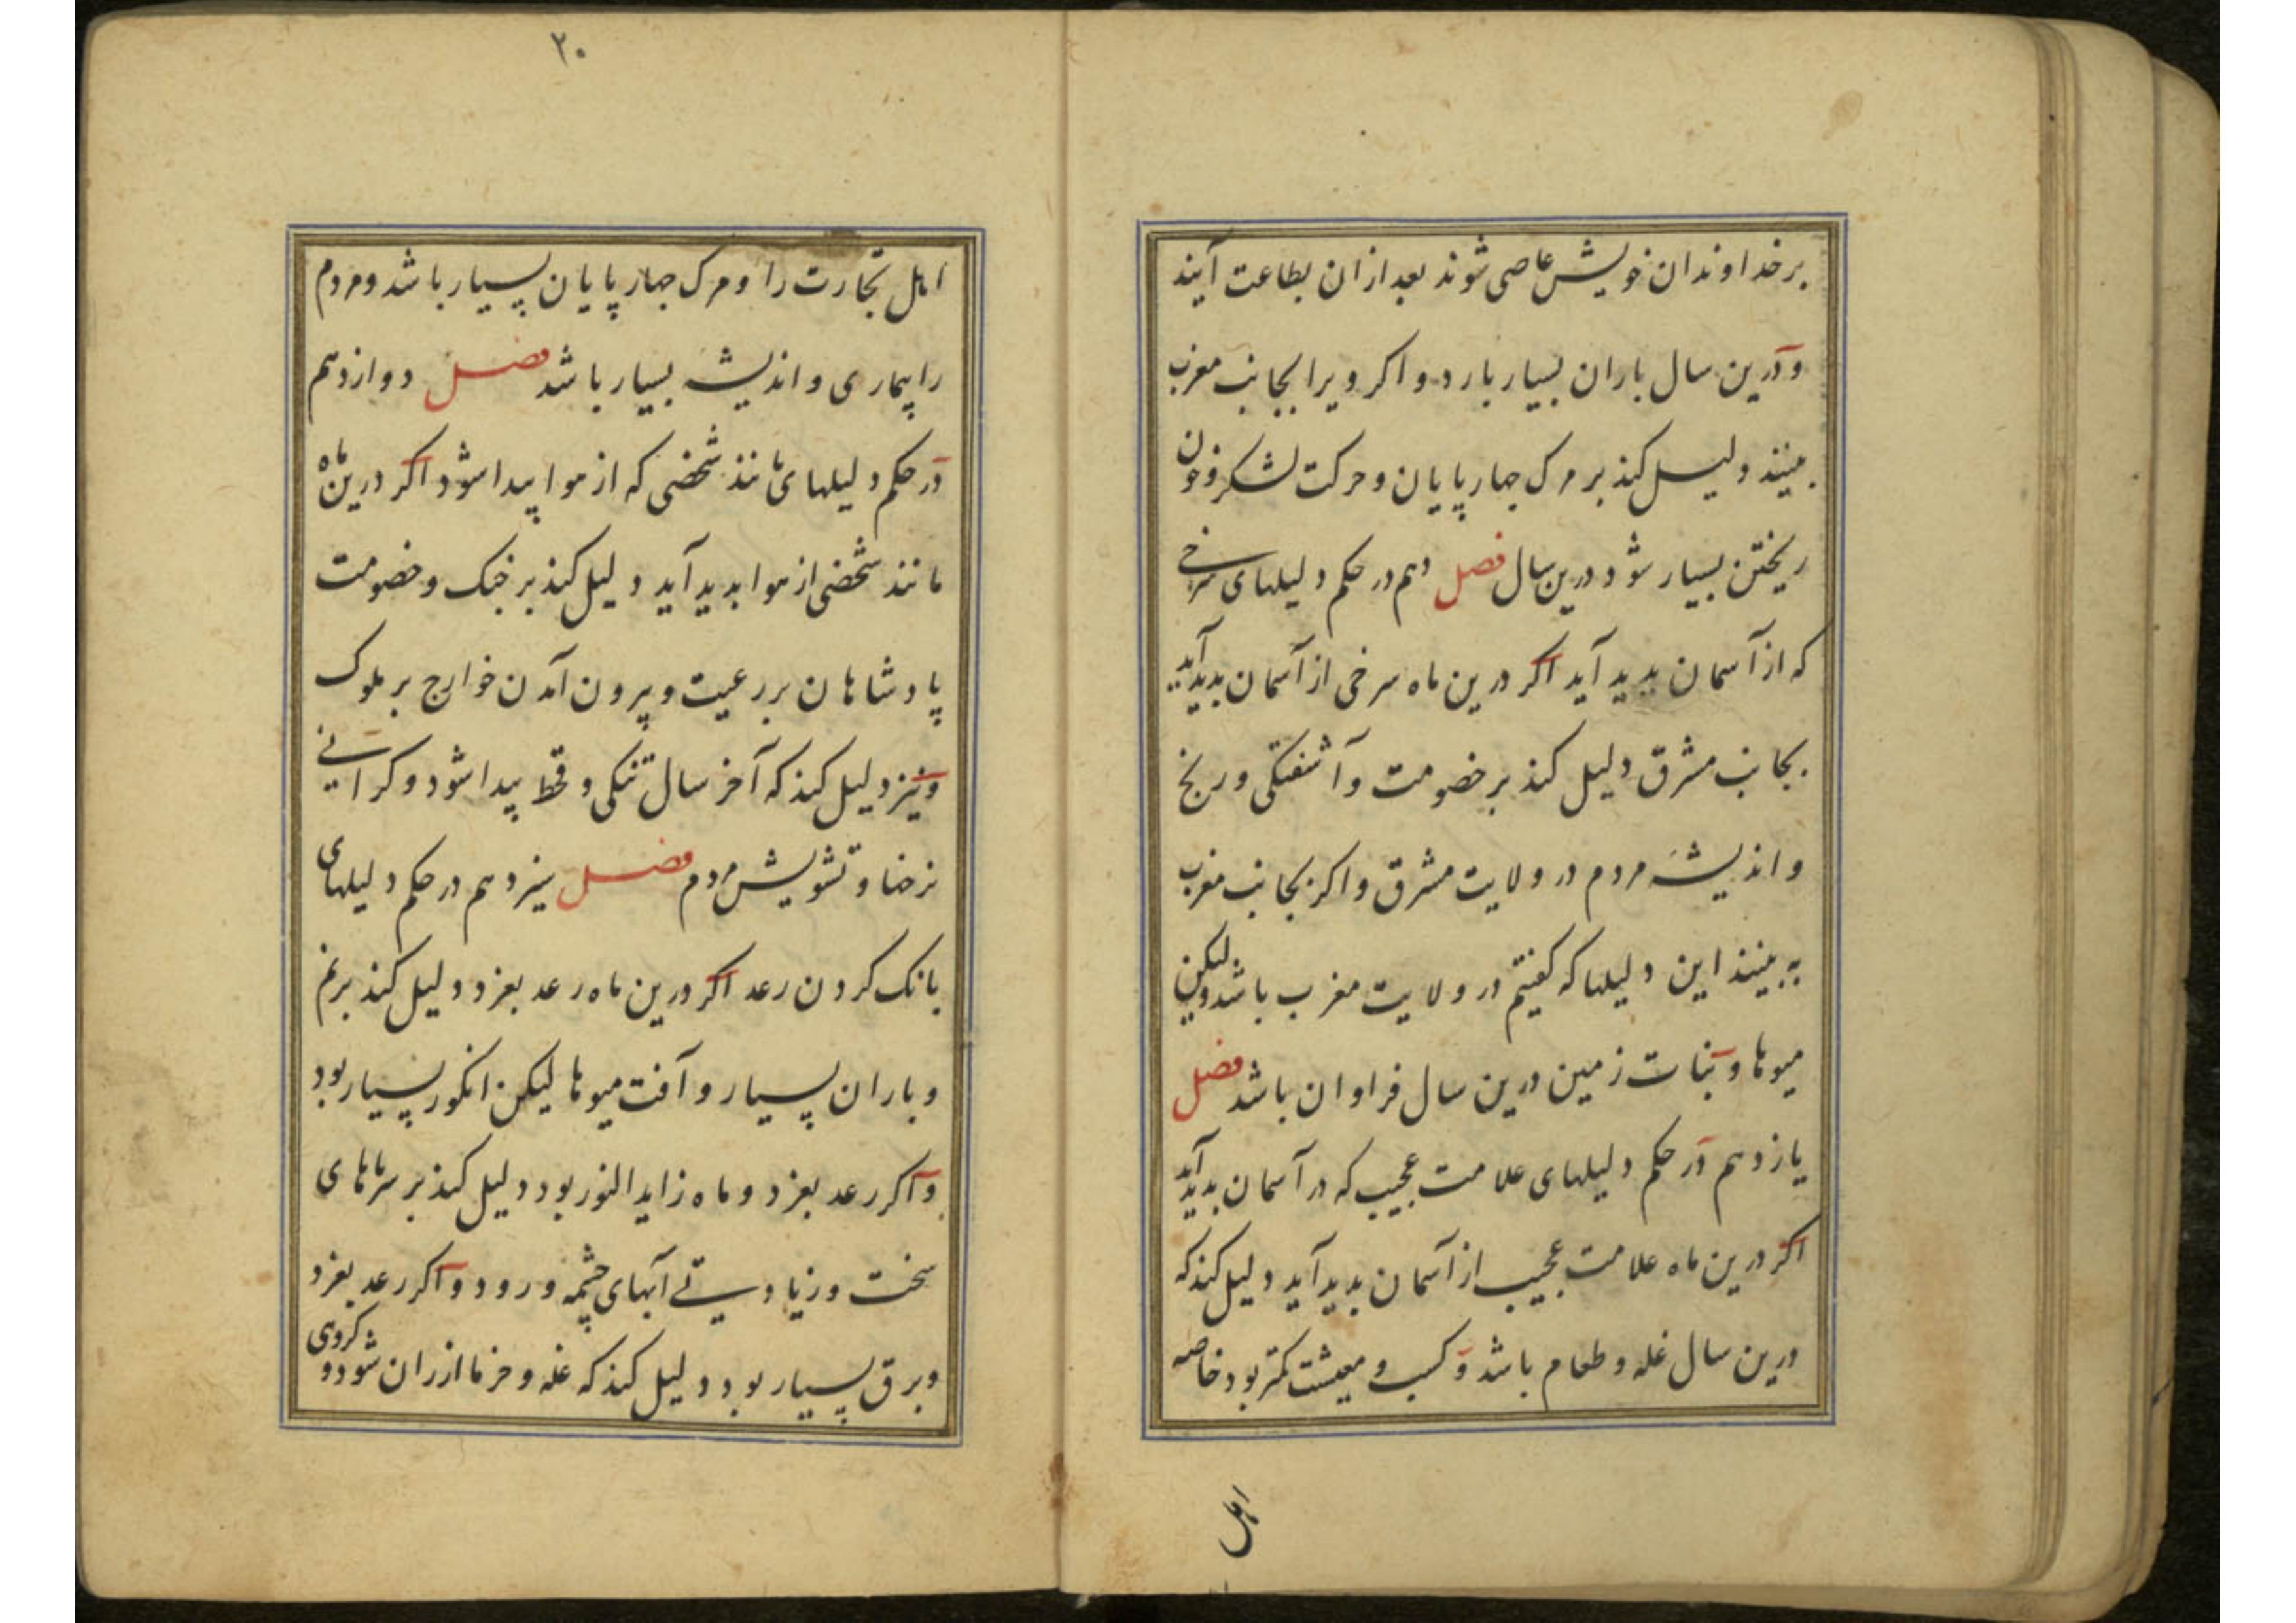 برخداوندان خویش عاصی شوند بعد ازان بطاعت آیند
و درین سال باران بسیار بارد و اکر ویرا بجانب مغرب
بینند دلیل کند بر مرک چهارپایان و حرکت لشکر و خون
ریختن بسیار شود درین سال فصل دهم در حکم دلیلهای سرخی
که از آسمان بدید آید اکر درین ماه سرخی از آسمان بدید آید
بجانب مشرق دلیل کند بر خصومت و آشفتکی و رنج
و اندیشه مردم در ولایت مشرق و اکر بجانب مغرب
به بینند این دلیلها که کفتیم در ولایت مغرب باشد ولیکن
میوها و نبات زمین درین سال فراوان باشد فصل
یازدهم در حکم دلیلهای علامت عجیب که در آسمان بدید آید
اکر درین ماه علامت عجیب از آسمان بدید آید دلیل کند که
درین سال غله و طعام باشد و کسب و معیشت کمتر بود خاصه
اهل
۲۰
اهل تجارت را و مرک چهارپایان بسیار باشد و مردم
را بیماری و اندیشه بسیار باشد فصل دوازدهم
در حکم دلیلهای مانند شخصی که از هوا پیدا شود اکر درین ماه
مانند شخصی از هوا بدید آید دلیل کند بر جنک و خصومت
پادشاهان بر رعیت و بیرون آمدن خوارج بر ملوک
و نیز دلیل کند که آخر سال تنکی و قحط پیدا شود و کرانی
نرخها و تشویش مردم فصل سیزدهم در حکم دلیلهای
بانک کردن رعد اکر درین ماه رعد بغرد دلیل کند بر غم
و باران بسیار و آفت میوها لیکن انکور بسیار بود
و اکر رعد بغرد و ماه زاید النور بود دلیل کند بر سرماهای
سخت و زیادتی آبهای چشمه و رود و اکر رعد بغرد
و برق بسیار بود دلیل کند که غله و خرما ارزان شود و کروهی